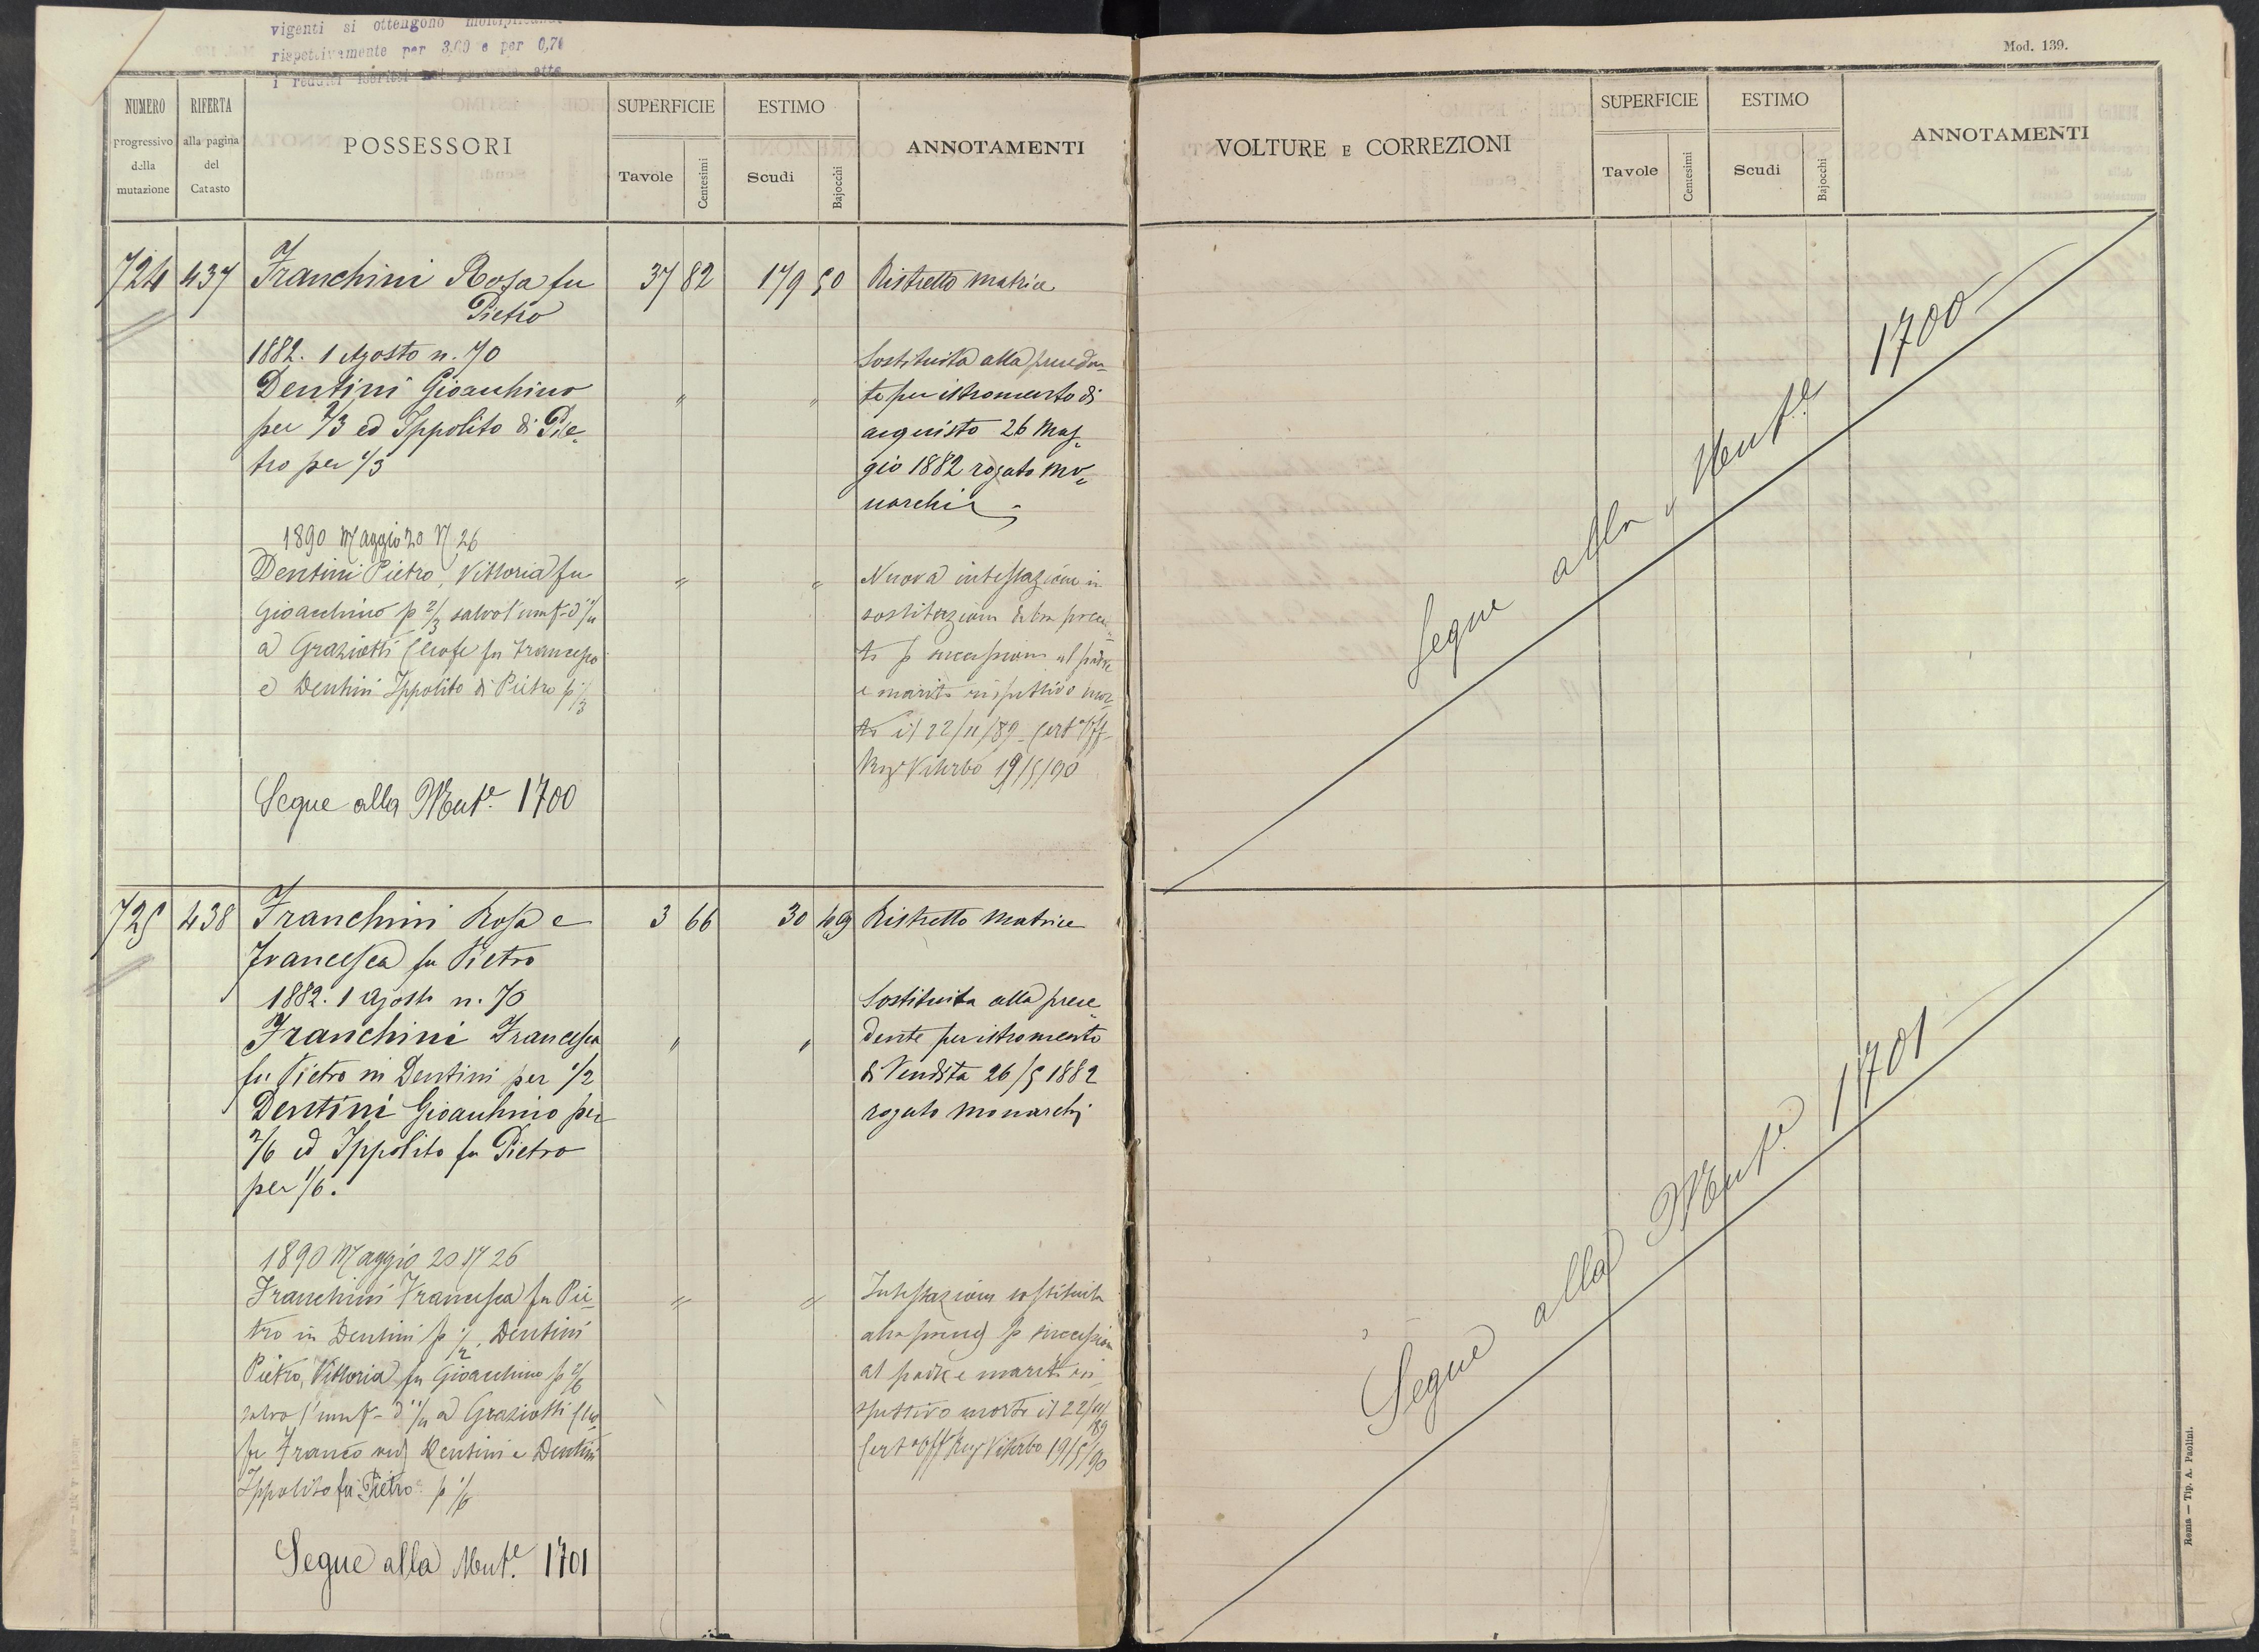 vigenti si ottengono
rispettivamente per 3.60 e per 0,74
i redditi
Mod. 139.
NUMERO progressivo della mutazione
RIFERTA alla pagina del Catasto
POSSESSORI
SUPERFICIE
Tavole
Centesimi
ESTIMO
Scudi
Bajocchi
ANNOTAMENTI
VOLTURE E CORREZIONI
SUPERFICIE
Tavole
Centesimi
ESTIMO
Scudi
Bajocchi
ANNOTAMENTI
724 437 Franchini Rosa fu 37 82 179 50 Ristretto Matrice
Pietro
1882. 1 Agosto n. 70
Dentini Gioacchino
per 2/3 ed Ippolito di Pie-
tro per 1/3
Sostituita alla preceden-
te per istromento di
acquisto 26 Mag-
gio 1882 rogato Mo-
narchi
1890 Maggio 20 N 26
Dentini Pietro, Vittoria fu
Gioacchino p 2/3 salvo l'
a Graziotti fu Francesco
e Dentini Ippolito di Pietro p 1/3
Nuova intestazione in
sostituzione
te p successione al padre
e marito rispettivo mor-
to il 22/11/89 Cert° Uff
Reg° Viterbo 19/5/90
Segue alla Mut.e 1700
Segue alla Mut.e 1700
725 438 Franchini Rosa e 3 66 30 49 Ristretto Matrice
Francesca fu Pietro
1882. 1 Agosto n. 70
Franchini Francesca
fu Pietro in Dentini per 1/2
Dentini Gioacchino per
2/6 ed Ippolito fu Pietro
per 1/6.
Sostituita alla prece-
dente per istromento
di Vendita 26/5 1882
rogato Monarchi
1890 Maggio 20 N 26
Franchini Francesca fu Pie-
tro in Dentini p 1/2, Dentini
Pietro, Vittoria fu Gioacchino p 2/6
salvo l' a Graziotti
fu Franco ved Dentini e Dentini
Ippolito fu Pietro p 1/6
Intestazione sostituita
alla p successione
al padre e marito ri-
spettivo morto il 22/11/89
Cert° Uff Reg° Viterbo 19/5/90
Segue alla Mut.e 1701
Segue alla Mut.e 1701
Roma — Tip. A. Paolini.